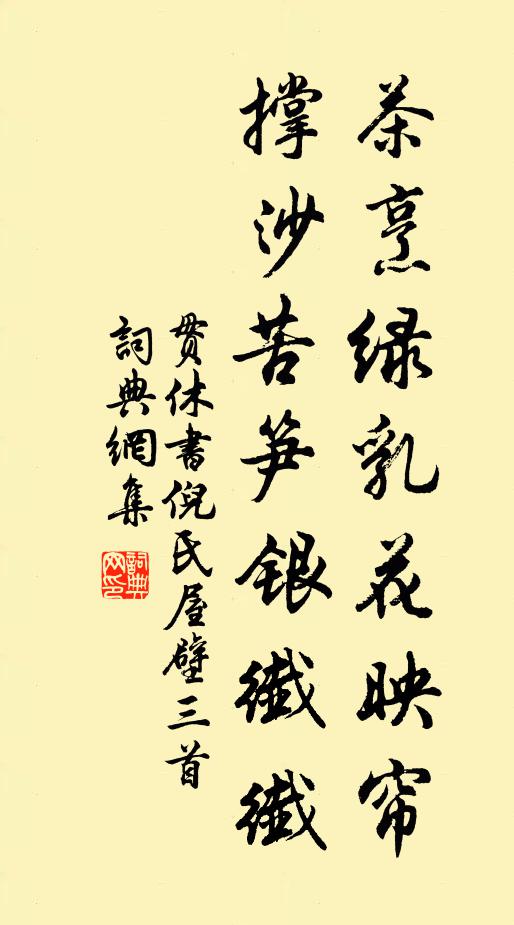 茶烹绿乳花映帘
撑沙苦笋银纖纖
贯休書倪氏屋壁三首
詞典網集
詞典网印